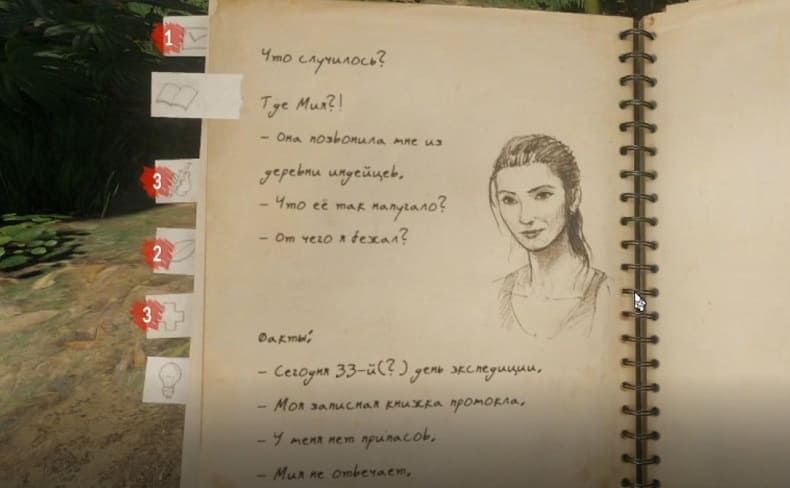 1
Что случилось?
Где Мия?!
- Она позвонила мне из
деревни индейцев.
3
- Что её так напугало?
- От чего я бежал?
2
3
Факты:
- Сегодня 33-й(?) день экспедиции.
- Моя записная книжка промокла.
- У меня нет припасов.
- Мия не отвечает.